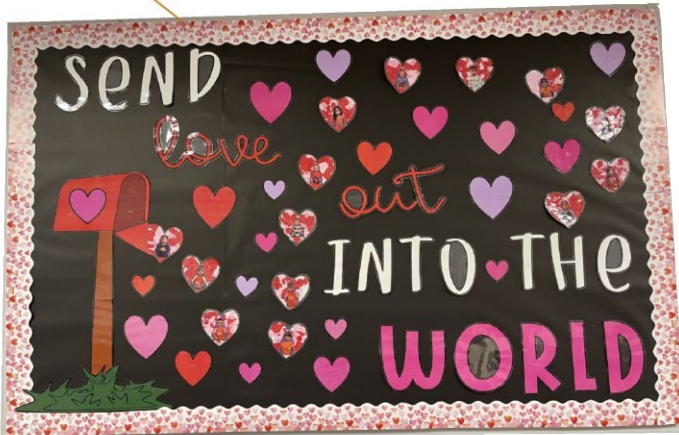 SEND
love
out
INTO THE
WORLD